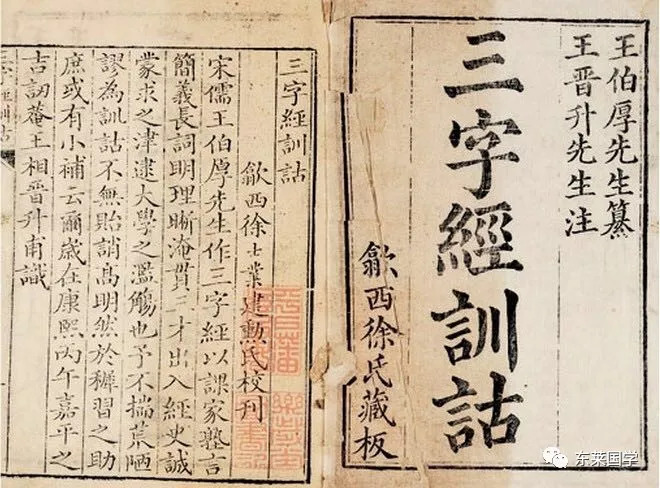 王伯厚先生纂
王晋升先生注
三字經訓詁
歙西徐氏藏板
三字經訓詁
歙西徐士業建勲氏校刊
宋儒王伯厚先生作三字經以課家塾言
簡義長詞明理晰淹貫三才出入經史誠
蒙求之津逮大學之濫觴也予不揣荒陋
謬為訓詁不無貽誚高明然於穉習之助
庶或有小補云爾歲在康熙丙午嘉平之
吉訒菴王相晋升甫識
东莱国学